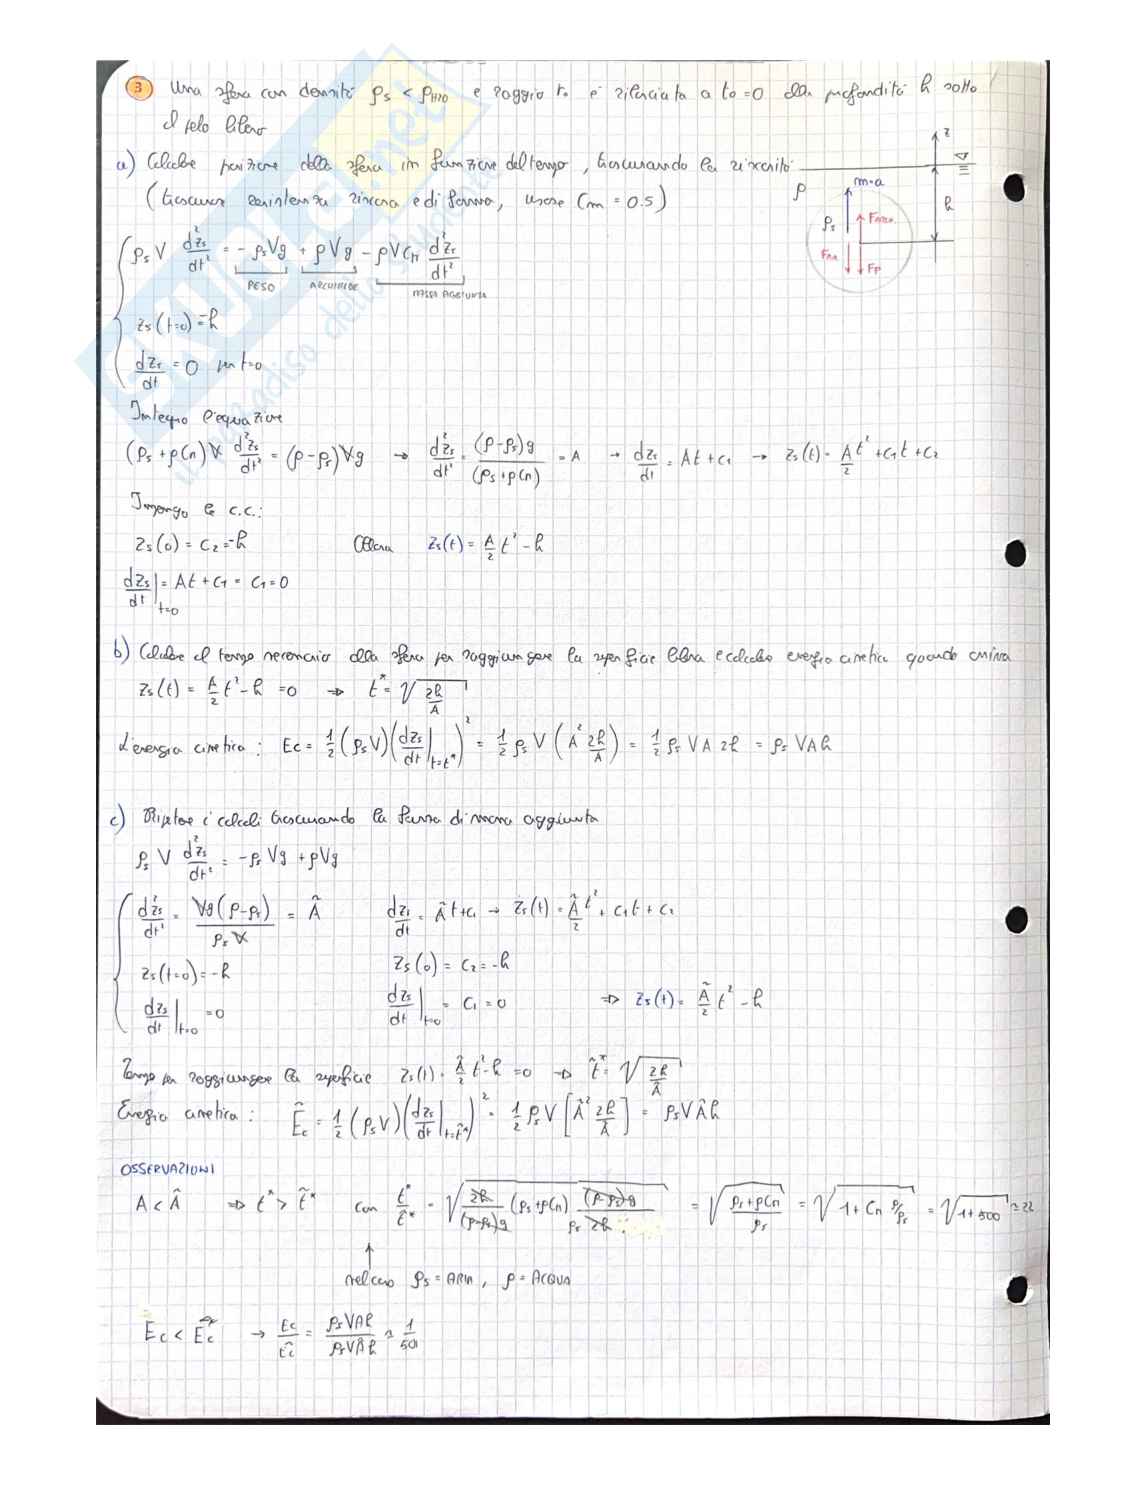 3 Una sfera con densità ρs < ρH2O e raggio r0 è rilasciata a t0=0 alla profondità h sotto
il pelo libero
a) Calcolare posizione della sfera in funzione del tempo, trascurando la viscosità
(trascurare resistenza viscosa e di forma, usare Cm = 0.5)
z
ρ
m·a
ρs
FARCH.
h
FMA
FP
ρs V d²zs/dt² = - ρsVg + ρVg - ρVCm d²zs/dt²
PESO ARCHIMEDE MASSA AGGIUNTA
zs(t=0) = -h
dzs/dt = 0 per t=0
Integro l'equazione
(ρs + ρCm)V d²zs/dt² = (ρ-ρs)Vg → d²zs/dt² = (ρ-ρs)g/(ρs+ρCm) = A → dzs/dt = At + c1 → zs(t) = A/2 t² + c1t + c2
Impongo le c.c.:
zs(0) = c2 = -h Allora zs(t) = A/2 t² - h
dzs/dt|t=0 = At + c1 = c1 = 0
b) Calcolare il tempo necessario alla sfera per raggiungere la superficie libera e calcolo energia cinetica quando arriva
zs(t) = A/2 t² - h = 0 ⇒ t* = √(2h/A)
L'energia cinetica : Ec = 1/2 (ρsV)(dzs/dt|t=t*)² = 1/2 ρs V (A² 2h/A) = 1/2 ρs V A 2h = ρs VAh
c) Ripetere i calcoli trascurando la forza di massa aggiunta
ρs V d²zs/dt² = -ρs Vg + ρVg
d²zs/dt² = Vg(ρ-ρs)/ρs V = Ã dzs/dt = Ãt + c1 → zs(t) = Ã/2 t² + c1t + c2
zs(t=0) = -h zs(0) = c2 = -h
dzs/dt|t=0 = 0 dzs/dt|t=0 = c1 = 0 ⇒ zs(t) = Ã/2 t² - h
Tempo per raggiungere la superficie zs(t) = Ã/2 t² - h = 0 ⇒ t̃* = √(2h/Ã)
Energia cinetica : Ẽc = 1/2 (ρsV)(dzs/dt|t=t̃*)² = 1/2 ρs V [ò 2h/Ã] = ρsVÃh
OSSERVAZIONI
A < Ã ⇒ t* > t̃* con t*/t̃* = √(2h/(ρ-ρs)g (ρs+ρCm) (ρ-ρs)g/ρs 2h) = √((ρs+ρCm)/ρs) = √(1+Cm ρ/ρs) = √(1+500) ≈ 22
nel caso ρs = ARIA, ρ = ACQUA
Ec < Ẽc → Ec/Ẽc = ρsVAh/ρsVÃh ≈ 1/501